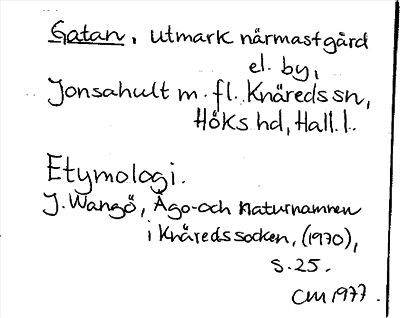 Gatan, utmark närmast gård
el. by,
Jonsahult m. fl. Knäreds sn,
Höks hd, Hall. l.
Etymologi.
J. Wangö, Ägo- och Naturnamnen
i Knäreds socken, (1970),
s. 25.
CM 1977.